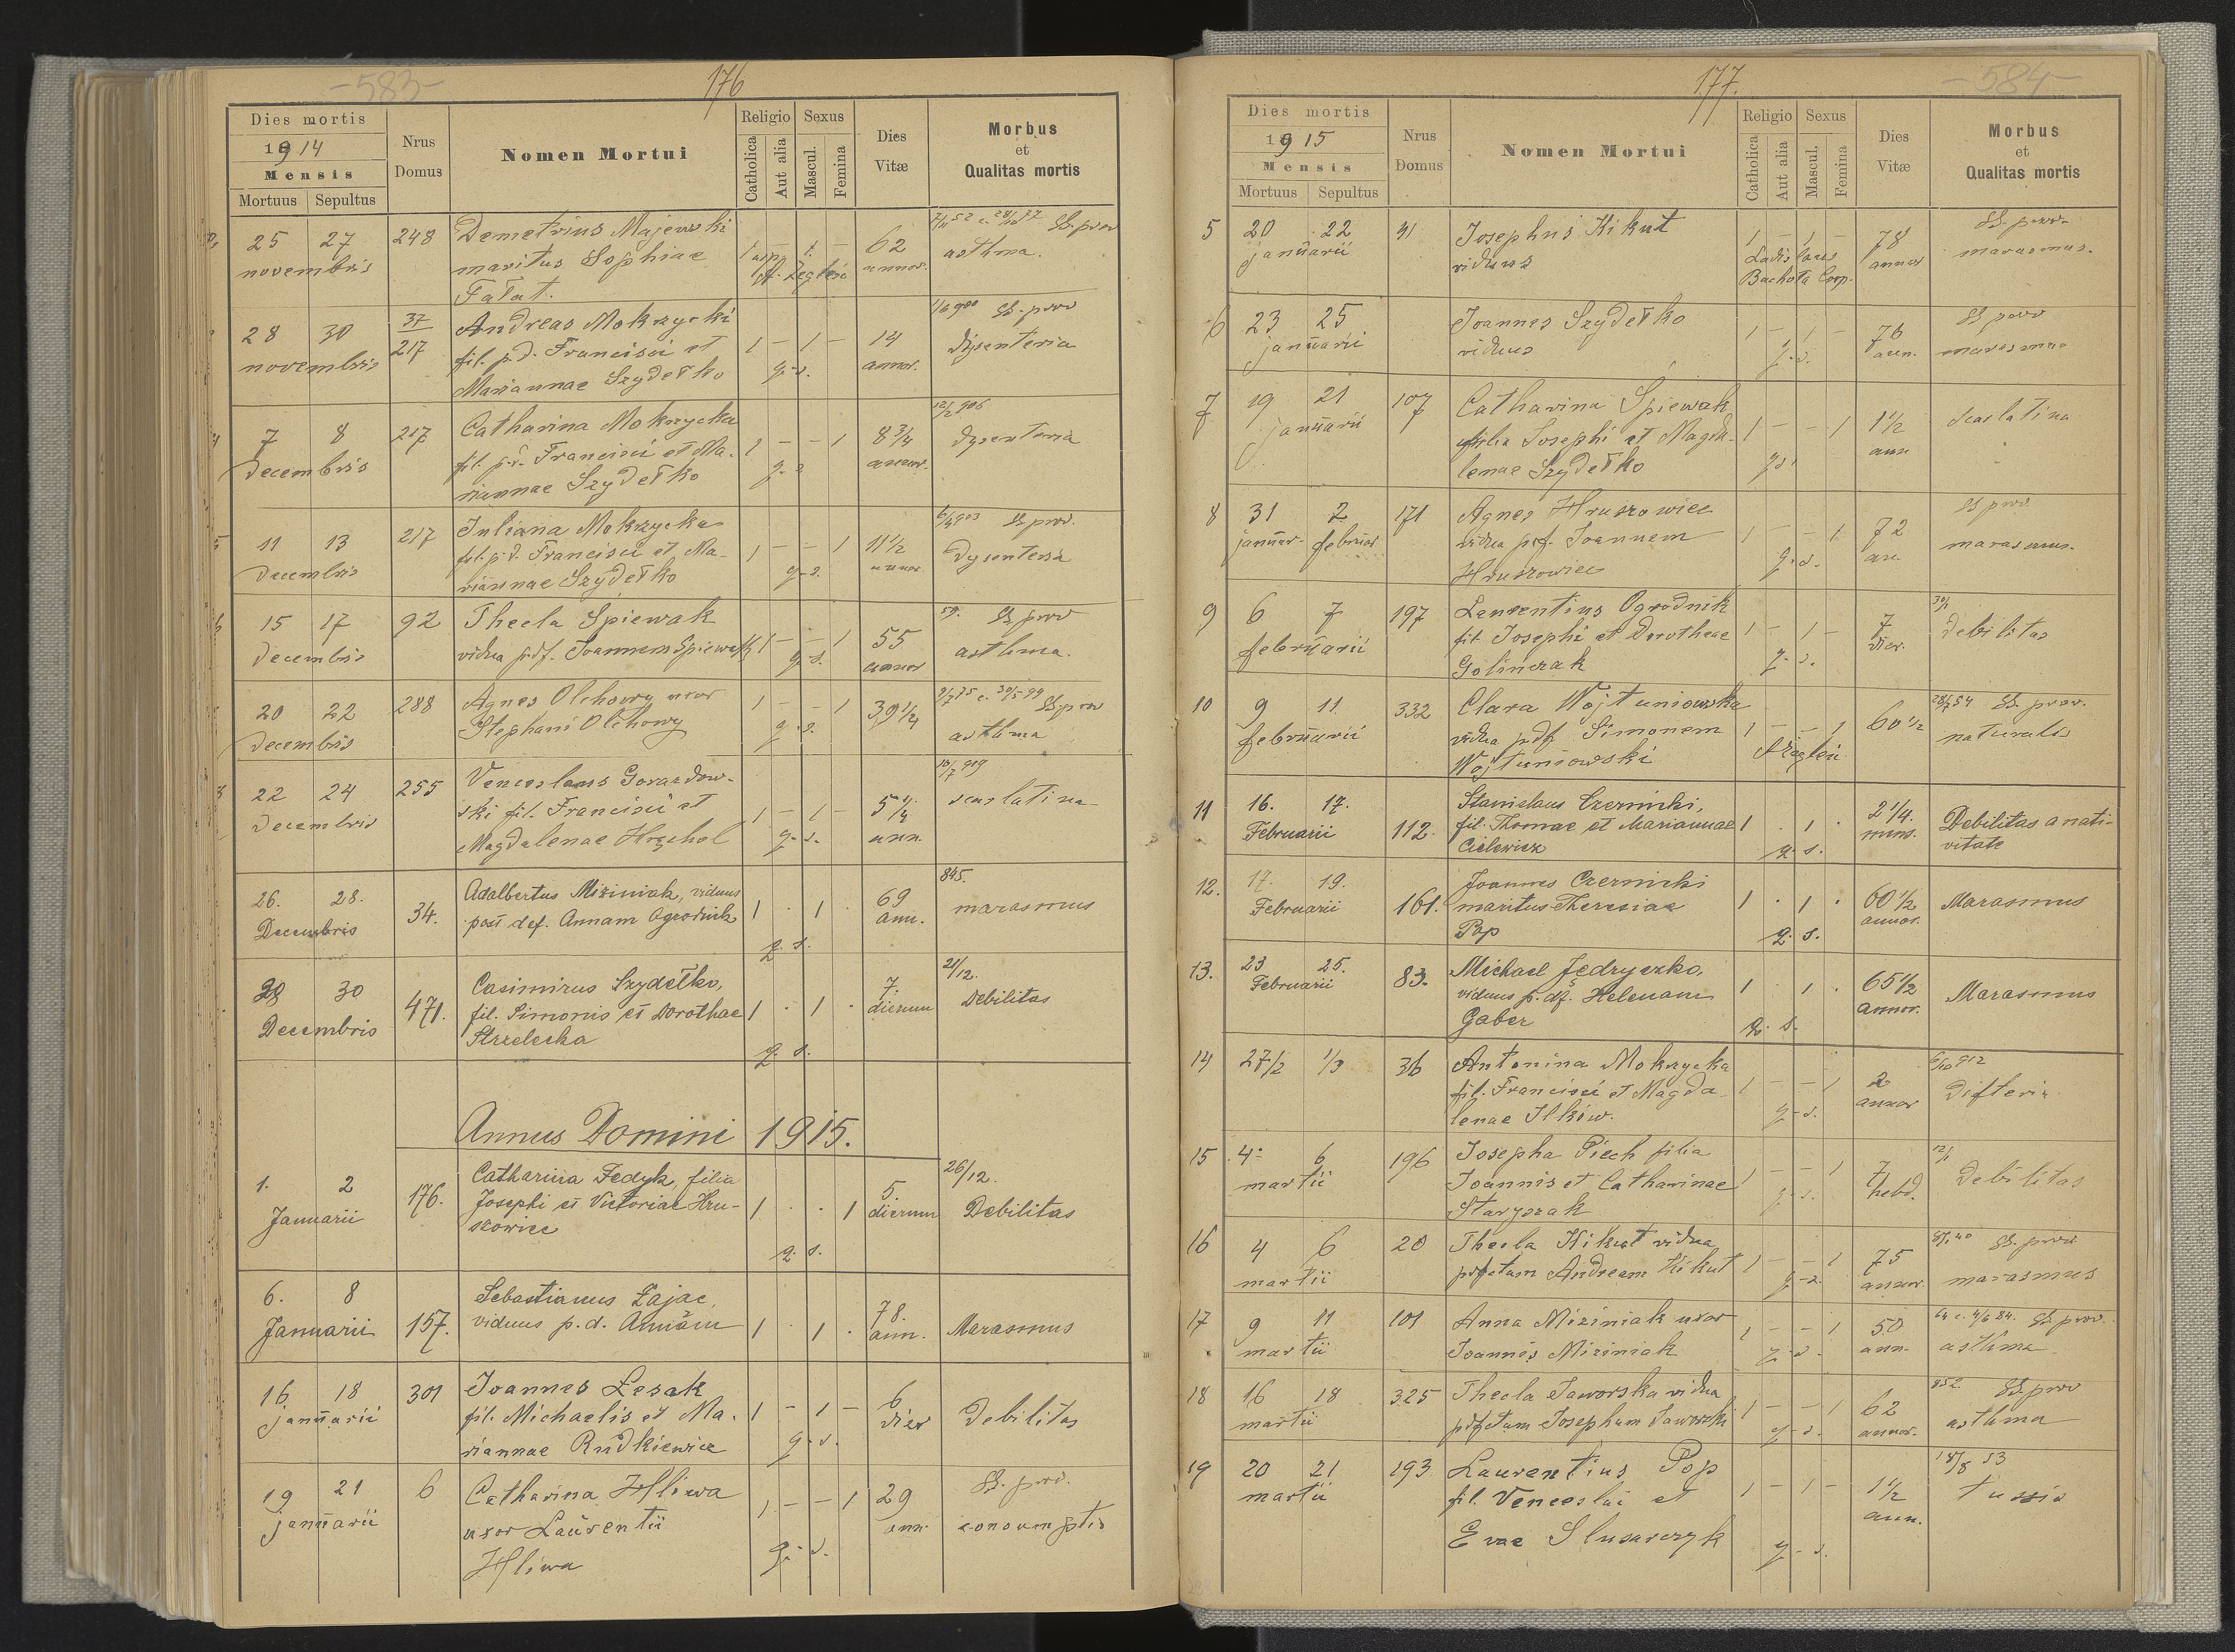 -583-
176
Dies mortis
1914
Mensis
Mortuus Sepultus
Nrus
Domus
Nomen Mortui
Religio
Catholica
Aut alia
Sexus
Mascul.
Femina
Dies
Vitæ
Morbus
et
Qualitas mortis
25 27 248 Demetrius Majewski 62 SS. prov
novembris maritus Sophiae annor. asthma.
Fałat.
28 30 37 Andreas Mokrzycki SS. prov
217 fil. p. d. Francisci et 1 – 1 – 14 Dysenteria
novembris Mariannae Szydełko q. s. annor.
12/2 906
7 8 217 Catharina Mokrzycka 1 – – 1 8 3/4 Dysenteria
Decembris fil. p. d. Francisci et Ma-
riannae Szydełko q. s.
6/4 903 SS. prov.
11 13 217 Juliana Mokrzycka 1 – – 1 11 1/2 Dysenteria
Decembris fil. p. d. Francisci et Ma-
riannae Szydełko q. s.
59. SS. prov
15 17 92 Thecla Spiewak 55
Decembris vidua p. df. Joannem Spiewak 1 – – 1 annor asthma.
q. s.
20 22 288 Agnes Olchowy uxor 1 – – 1 39 1/4 SS. prov
Decembris Stephani Olchowy q. s. asthma
22 24 255 Venceslaus Gorazdow-
Decembris ski fil. Francisci et 1 – 1 – 5 1/4 scarlatina
Magdalenae Hrychol q. s. ann.
845.
26. 28. 34. Adalbertus Miziniak, viduus 69
Decembris post def. Annam Ogrodnik 1 . 1 . ann. marasmus
q. s.
21/12.
29 30 471. Casimirus Szydełko, 7.
Decembris fil. Simonis et Dorothae 1 . 1 . dierum Debilitas
Strzelecka q. s.
Annus Domini 1915.
26/12.
1. 2 176. Catharina Fedyk, filia 5.
Januarii Josephi et Victoriae Hru- 1 . . 1 dierum Debilitas
szowiec q. s.
6. 8 157. Sebastianus Zając, 78.
Januarii viduus p. d. Annam 1 . 1 . ann. Marasmus
16 18 301 Joannes Lesak 6
januarii fil. Michaelis et Ma- 1 – 1 – dier Debilitas
riannae Rudkiewicz q. s.
19 21 6 Catharina Hliwa 1 – – 1 29 SS. prov.
januarii uxor Laurentii ann. consumptio
Hliwa q. s.
177.
-584-
Dies mortis
1915
Mensis
Mortuus Sepultus
Nrus
Domus
Nomen Mortui
Religio
Catholica
Aut alia
Sexus
Mascul.
Femina
Dies
Vitæ
Morbus
et
Qualitas mortis
5 20 22 31 Josephus Kikut 1 – 1 – 78 SS. prov.
januarii viduus Ladislaus annor marasmus.
Bachota Coop.
6 23 25 Joannes Szydełko 1 – 1 – 76 SS prov
januarii viduus q. s. ann. marasmus
7 19 21 107 Catharina Spiewak
januarii filia Josephi et Magda- 1 – – 1 1 1/2 Scarlatina
lenae Szydełko q. s. ann
8 31 2 171 Agnes Hruszowiec SS prov.
januar. februar vidua p. df. Joannem 1 – – 1 72 marasmus.
Hruszowiec q. s. an.
30/1
9 6 7 197 Laurentius Ogrodnik 7 Debilitas
februarii fil. Josephi et Dorotheae 1 – 1 – dier.
Golinczak q. s.
SS. prov.
10 9 11 332 Clara Wojtuniowska
februarii vidua p. df. Simonem 1 – – 1 60 1/2 naturalis
Wojtuniowski
11 16. 17. 112. Stanislaus Czernicki, 2 1/4.
Februarii fil. Thomae et Mariannae 1 . 1 . mens. Debilitas a nati-
Cielewicz q. s. vitate
12. 17. 19. 161. Joannes Czernicki
Februarii maritus Theresiae 1 . 1 . 60 1/2 Marasmus
Pop q. s. annor.
13. 23 25. 83. Michael Jedryczko, 65 1/2
Februarii viduus p. df. Helenam 1 . 1 . annor. Marasmus
Gaber q. s.
6/10 912
14 27/2 1/3 36 Antonina Mokrzycka
fil. Francisci et Magda- 1 – – 1 2 Difteria
lenae Ilków. q. s. annor
12/1
15 4. 6 196 Josepha Piech filia
martii Joannis et Catharinae 1 – – 1 7 Debilitas
Staryszak q. s. hebd.
SS. prov.
16 4 6 20 Thecla Kikut vidua 75
martii p. dfctam Andream Kikut 1 – – 1 annor. marasmus
q. s.
SS prov.
17 9 11 101 Anna Miziniak uxor 1 – – 1 50
martii Joannis Miziniak q. s. ann. asthma
852. SS. prov
18 16 18 325 Thecla Jaworska vidua 62
martii p. dfctam Josephum Jaworski 1 – – 1 annor. asthma
q. s.
18/8 53
19 20 21 193 Laurentius Pop
martii fil. Venceslai et 1 – 1 – 1 1/2 tussis
Evae Slusarczyk q. s. ann.